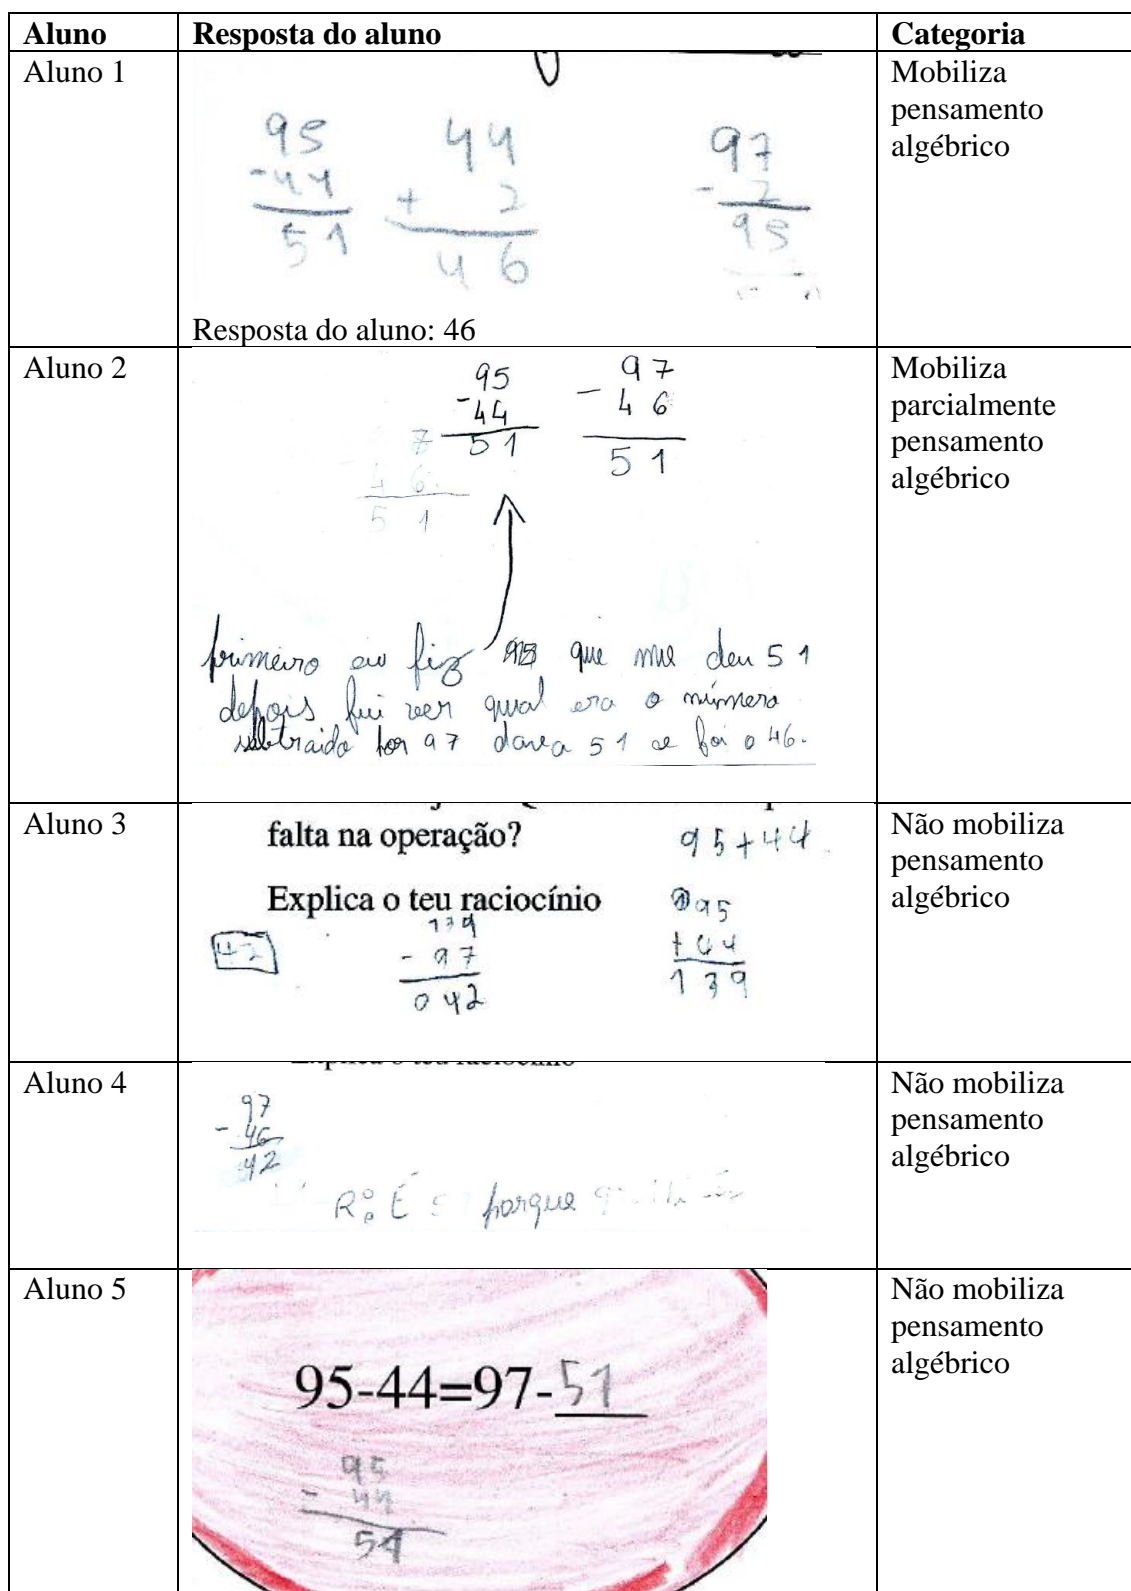 Aluno Resposta do aluno Categoria
Aluno 1
95
-44
51
44
+ 2
46
97
- 2
95
Resposta do aluno: 46
Mobiliza
pensamento
algébrico
Aluno 2
95
-44
51
97
- 46
51
7
- 46
51
primeiro eu fiz que me deu 51
depois fui ver qual era o número
subtraido por 97 dava 51 e foi o 46.
Mobiliza
parcialmente
pensamento
algébrico
Aluno 3
falta na operação?
95+44
Explica o teu raciocínio
42
139
- 97
042
95
+ 44
139
Não mobiliza
pensamento
algébrico
Aluno 4
97
- 46
42
R: É porque
Não mobiliza
pensamento
algébrico
Aluno 5
95-44=97-51
95
- 44
51
Não mobiliza
pensamento
algébrico